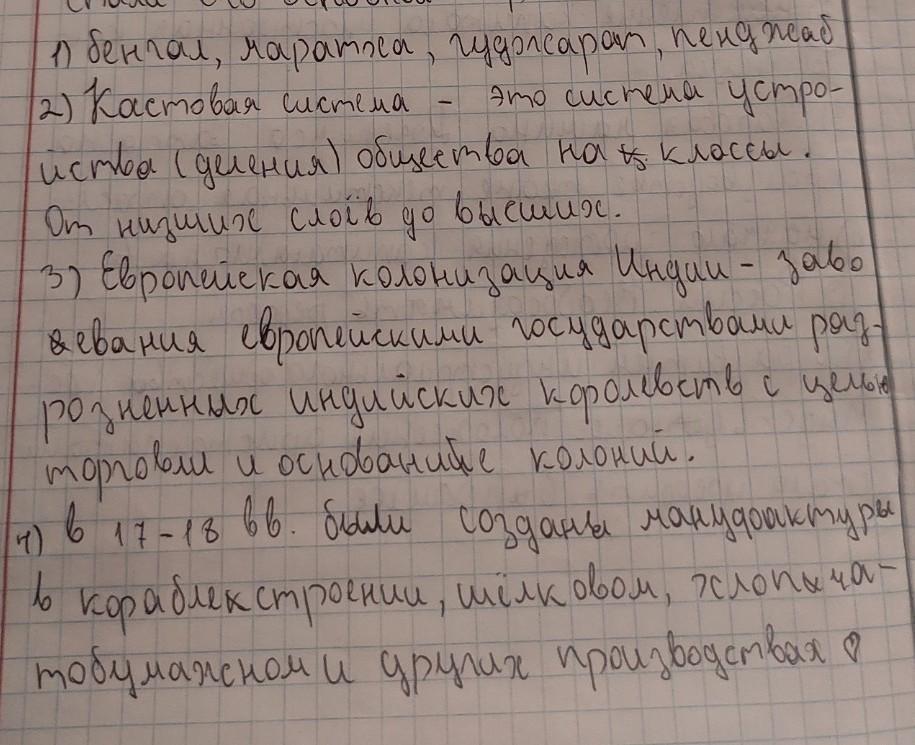 стала его основной
1) бенгал, маратха, гуджарат, пенджаб
2) Кастовая система - это система устро-
йства (деления) общества на классы.
От низших слоїв до высших.
3) Европейская колонизация Индии - заво
евания европейскими государствами раз-
розненных индийских королевств с целью
торговли и основание колоний.
4) в 17-18 вв. были созданы мануфактуры
в кораблекстроении, шёлковом, хлопча-
тобумажном и других производствах